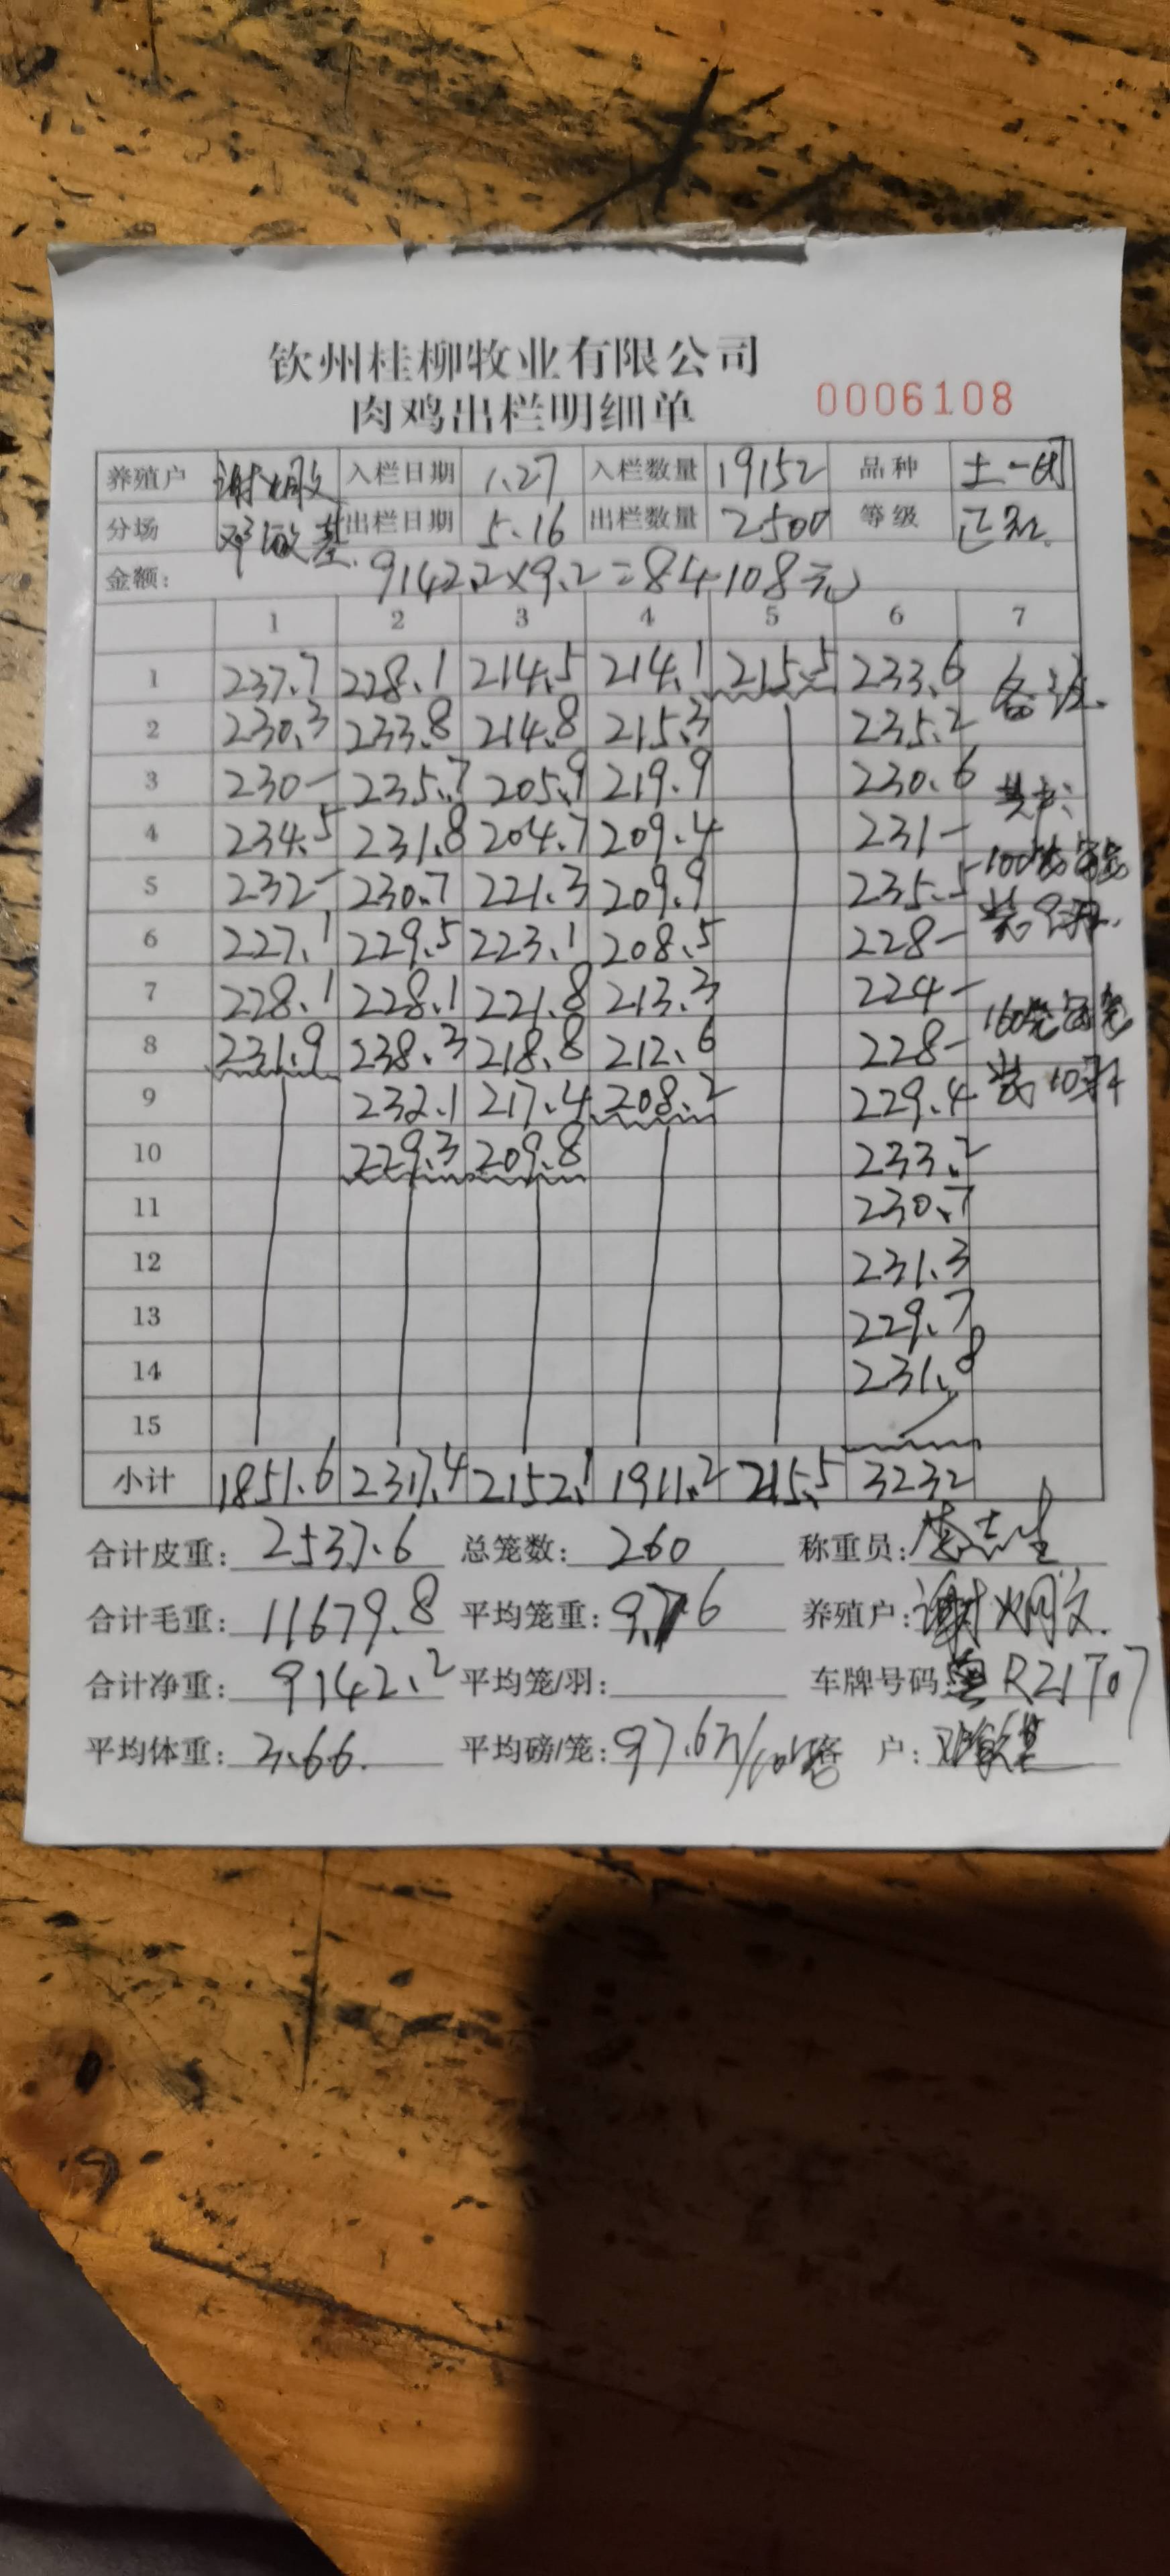 钦州桂柳牧业有限公司
肉鸡出栏明细单 0006108
养殖户 谢炯文 入栏日期 1.27 入栏数量 19152 品种 土一
分场 邓敏基 出栏日期 5.16 出栏数量 2500 等级 正品
金额: 9142.2×9.2=84108元
1 2 3 4 5 6 7
1 237.7 228.1 214.5 214.1 215.5 233.6 备注
2 230.3 233.8 214.8 215.3 235.2
3 230- 235.7 205.9 219.9 230.6 其中:
4 234.5 231.8 204.7 209.4 231-
5 232- 230.7 221.3 209.9 235.5 100笼每笼
6 227.1 229.5 223.1 208.5 228- 装9羽.
7 228.1 228.1 221.8 213.3 224-
8 231.9 238.3 218.8 212.6 228- 160笼每笼
9 232.1 217.4 208.2 229.4 装10羽
10 229.3 209.8 233.2
11 230.7
12 231.3
13 229.7
14 231.8
15
小计 1851.6 2317.4 2152.1 1911.2 215.5 3232
合计皮重: 2537.6 总笼数: 260 称重员:
合计毛重: 11679.8 平均笼重: 9.76 养殖户: 谢炯文.
合计净重: 9142.2 平均笼/羽: 车牌号码 粤R21707
平均体重: 3.66. 平均磅/笼: 97.6斤/10笼 客 户: 邓敏基